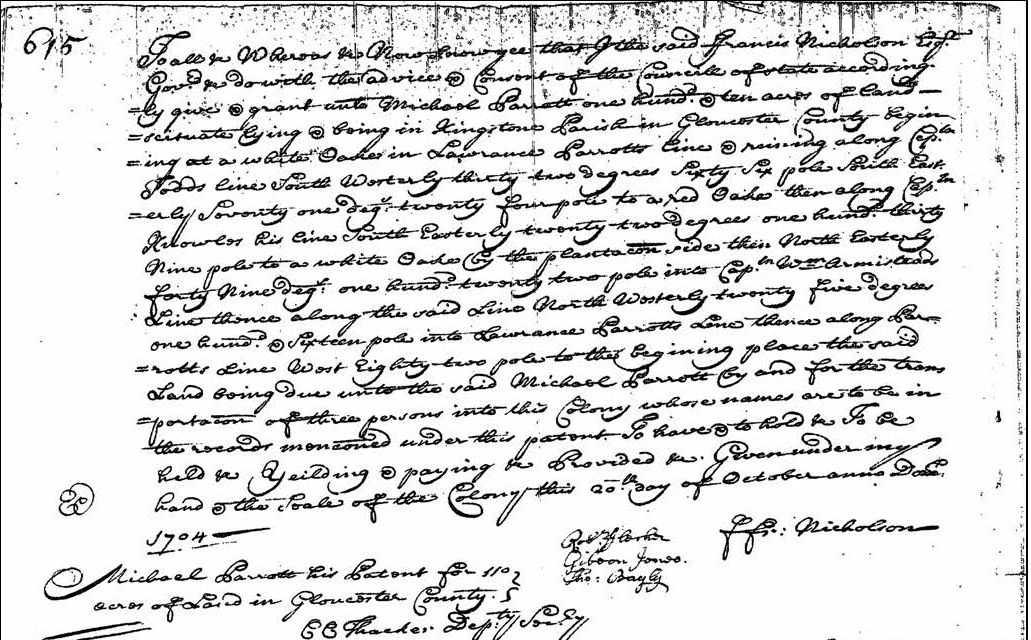 615
To all &c Whereas &c Now know yee that I the said Francis Nicholson Esqr.
Govr. &c do with the advice & Consent of the Councill of state according
=ly give & grant unto Michael Parrott one hund.d & ten acres of land
=scituate lying & being in Kingstone Parish in Gloucester County begin
=ing at a white Oake in Lawrance Parrotts line & runing along Capt.n
Todds line South Westerly thirty two degrees Sixty Six pole South East
=erly Seventy one deg.s twenty four pole to a red Oake then along Capt.n
Knowles his line South Easterly twenty two degrees one hund.d thirty
Nine pole to a white Oake by the plantacon side then North Easterly
forty Nine deg.s one hund.d twenty two pole into Capt.n Wm Armisteads
Line thence along the said Line North Westerly twenty five degrees
one hund.d & Sixteen pole into Lawrance Parrotts Line thence along Par=
=rotts Line West Eighty two pole to the begining place the said
Land being due unto the said Michael Parrott by and for the trans
=portacon of three persons into this Colony whose names are to be in
the records menconed under this patent To have & to hold &c To be
held &c Yeilding & paying &c Provided &c. Given under my
hand & the Seale of the Colony this 20th day of October anno Dom.
1704
ffr: Nicholson
Gibson Jones.
Tho: Bayly
Michael Parrott his Patent for 110
acres of Land in Gloucester County.
C C Thacker Depty Secry